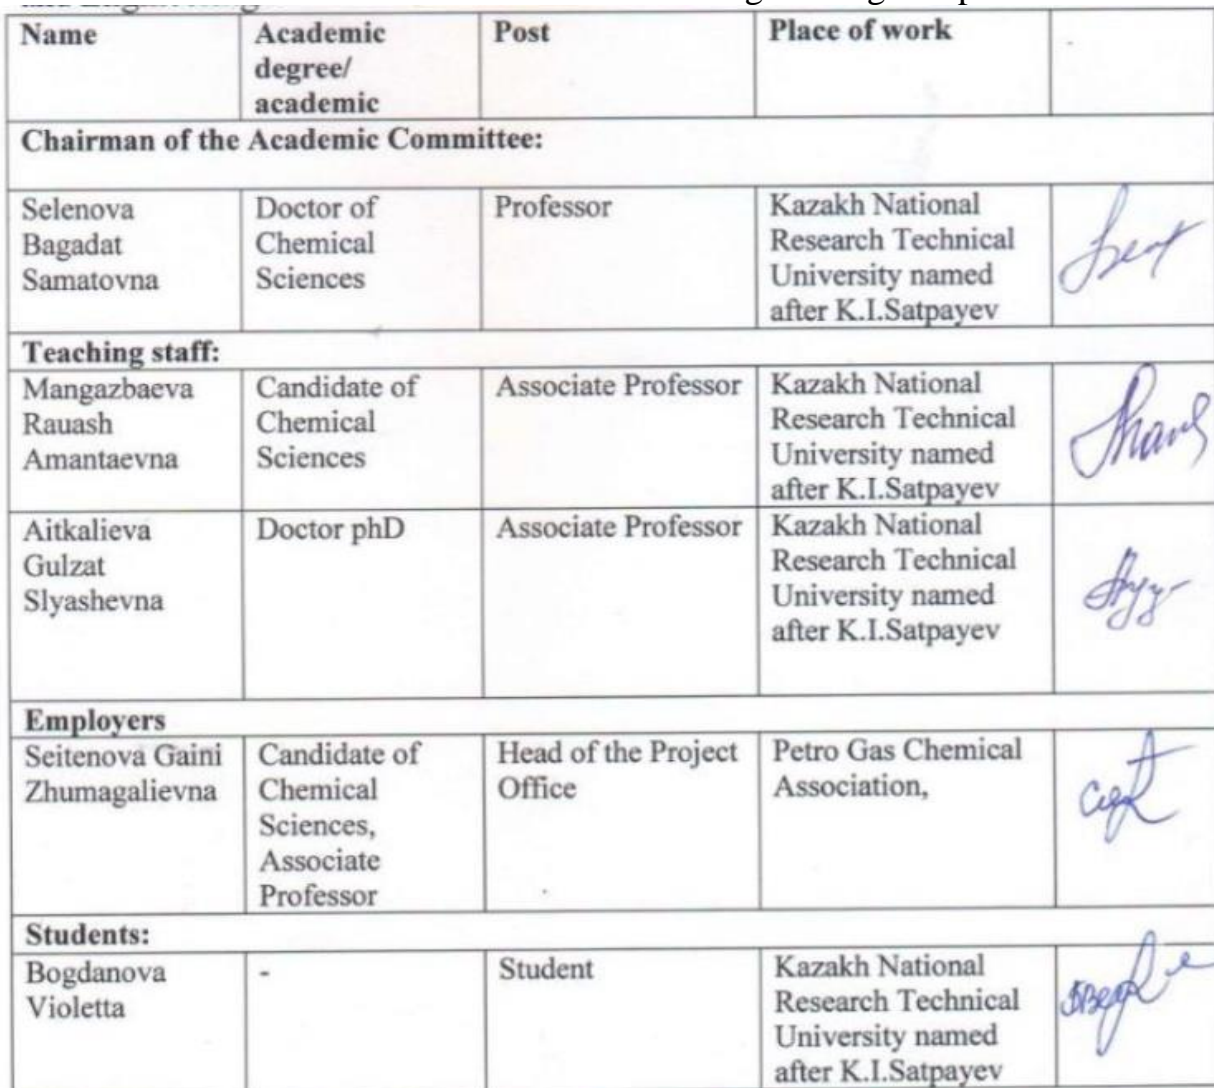 Name
Academic
degree/
academic
Post
Place of work
Chairman of the Academic Committee:
Selenova
Bagadat
Samatovna
Doctor of
Chemical
Sciences
Professor
Kazakh National
Research Technical
University named
after K.I.Satpayev
Teaching staff:
Mangazbaeva
Rauash
Amantaevna
Candidate of
Chemical
Sciences
Associate Professor
Kazakh National
Research Technical
University named
after K.I.Satpayev
Aitkalieva
Gulzat
Slyashevna
Doctor phD
Associate Professor
Kazakh National
Research Technical
University named
after K.I.Satpayev
Employers
Seitenova Gaini
Zhumagalievna
Candidate of
Chemical
Sciences,
Associate
Professor
Head of the Project
Office
Petro Gas Chemical
Association,
Students:
Bogdanova
Violetta
-
Student
Kazakh National
Research Technical
University named
after K.I.Satpayev